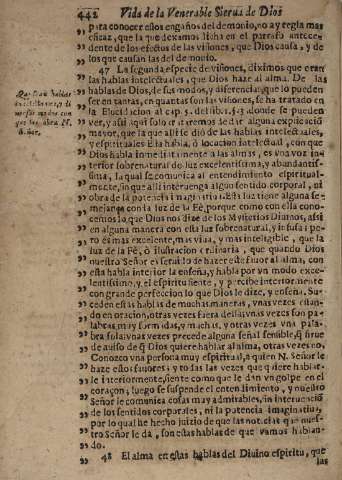 442 Vida de la Venerable Sierua de Dios
para conocer estos engaños del demonio, no ay regla mas
eficaz, que la que dexamos dicha en el parrafo antece-
dente de los efectos de las visiones, que Dios causa, y de
los que causan las del demonio.
47 La segunda especie de visiones, diximos que eran
las hablas intelectuales, que Dios haze al alma. De las
hablas de Dios, de sus modos, y diferencias, que lo pueden
ser en tantas, en quantas son las visiones, se ha tratado en
la Elucidacion al cap. 5. del lib. 1. donde se pueden
ver, y assi aqui solo trataremos de dir alguna explicació
mayor, que la que alli se dió de las hablas intelectuales,
y espirituales. Esta habla, ò locucion intelectual, con que
Dios habla immediatamente a las almas, es vna voz in-
terior sobrenatural de luz excelentissima, y abundantis-
sima, la qual se comunica al entendimiento espiritual-
mente, sin que alli interuenga algun sentido corporal, ni
obra de la potencia imaginatiua. Esta luz tiene alguna se-
mejança con la luz de la Fè, porque como con ella cono-
cemos lo que Dios nos dize de los Mysterios Diuinos, assi
en alguna manera con esta luz sobrenatural, y infusa; pe-
ro es mas excelente, mas viua, y mas inteligible, que la
luz de la Fè, ò ilustracion ordinaria, que quando Dios
nuestro Señor es seruido de hazer este fauor al alma, con
esta habla interior la enseña, y habla por vn modo exce-
lentissimo, y el espiritu siente, y percibe interiormente
con grande perfeccion lo que Dios le dize, y enseña. Su-
ceden estas hablas de muchas maneras, vnas vezes estan-
do en oracion, otras vezes fuera della; vnas vezes son pa-
labras muy formadas, y muchas, y otras vezes vna pala-
bra sola; vnas vezes precede alguna señal sensible, q̃ sirue
de auiso de q̃ Dios quiere hablar al alma, otras vezes no.
Conozco vna persona muy espiritual, a quien N. Señor le
haze estos fauores; y todas las vezes que quiere hablar-
le interiormente, siente como que le dan vn golpe en el
coraçon; luego se suspende el entendimiento, y nuestro
Señor le comunica cosas muy admirables, sin interuenció
de los sentidos corporales, ni la potencia imaginatiua,
por lo qual he hecho juizio de que las noticias que nues-
tro Señor le dà, son estas hablas de que vamos hablan-
do.
48 El alma en estas hablas del Diuino espiritu, que
las